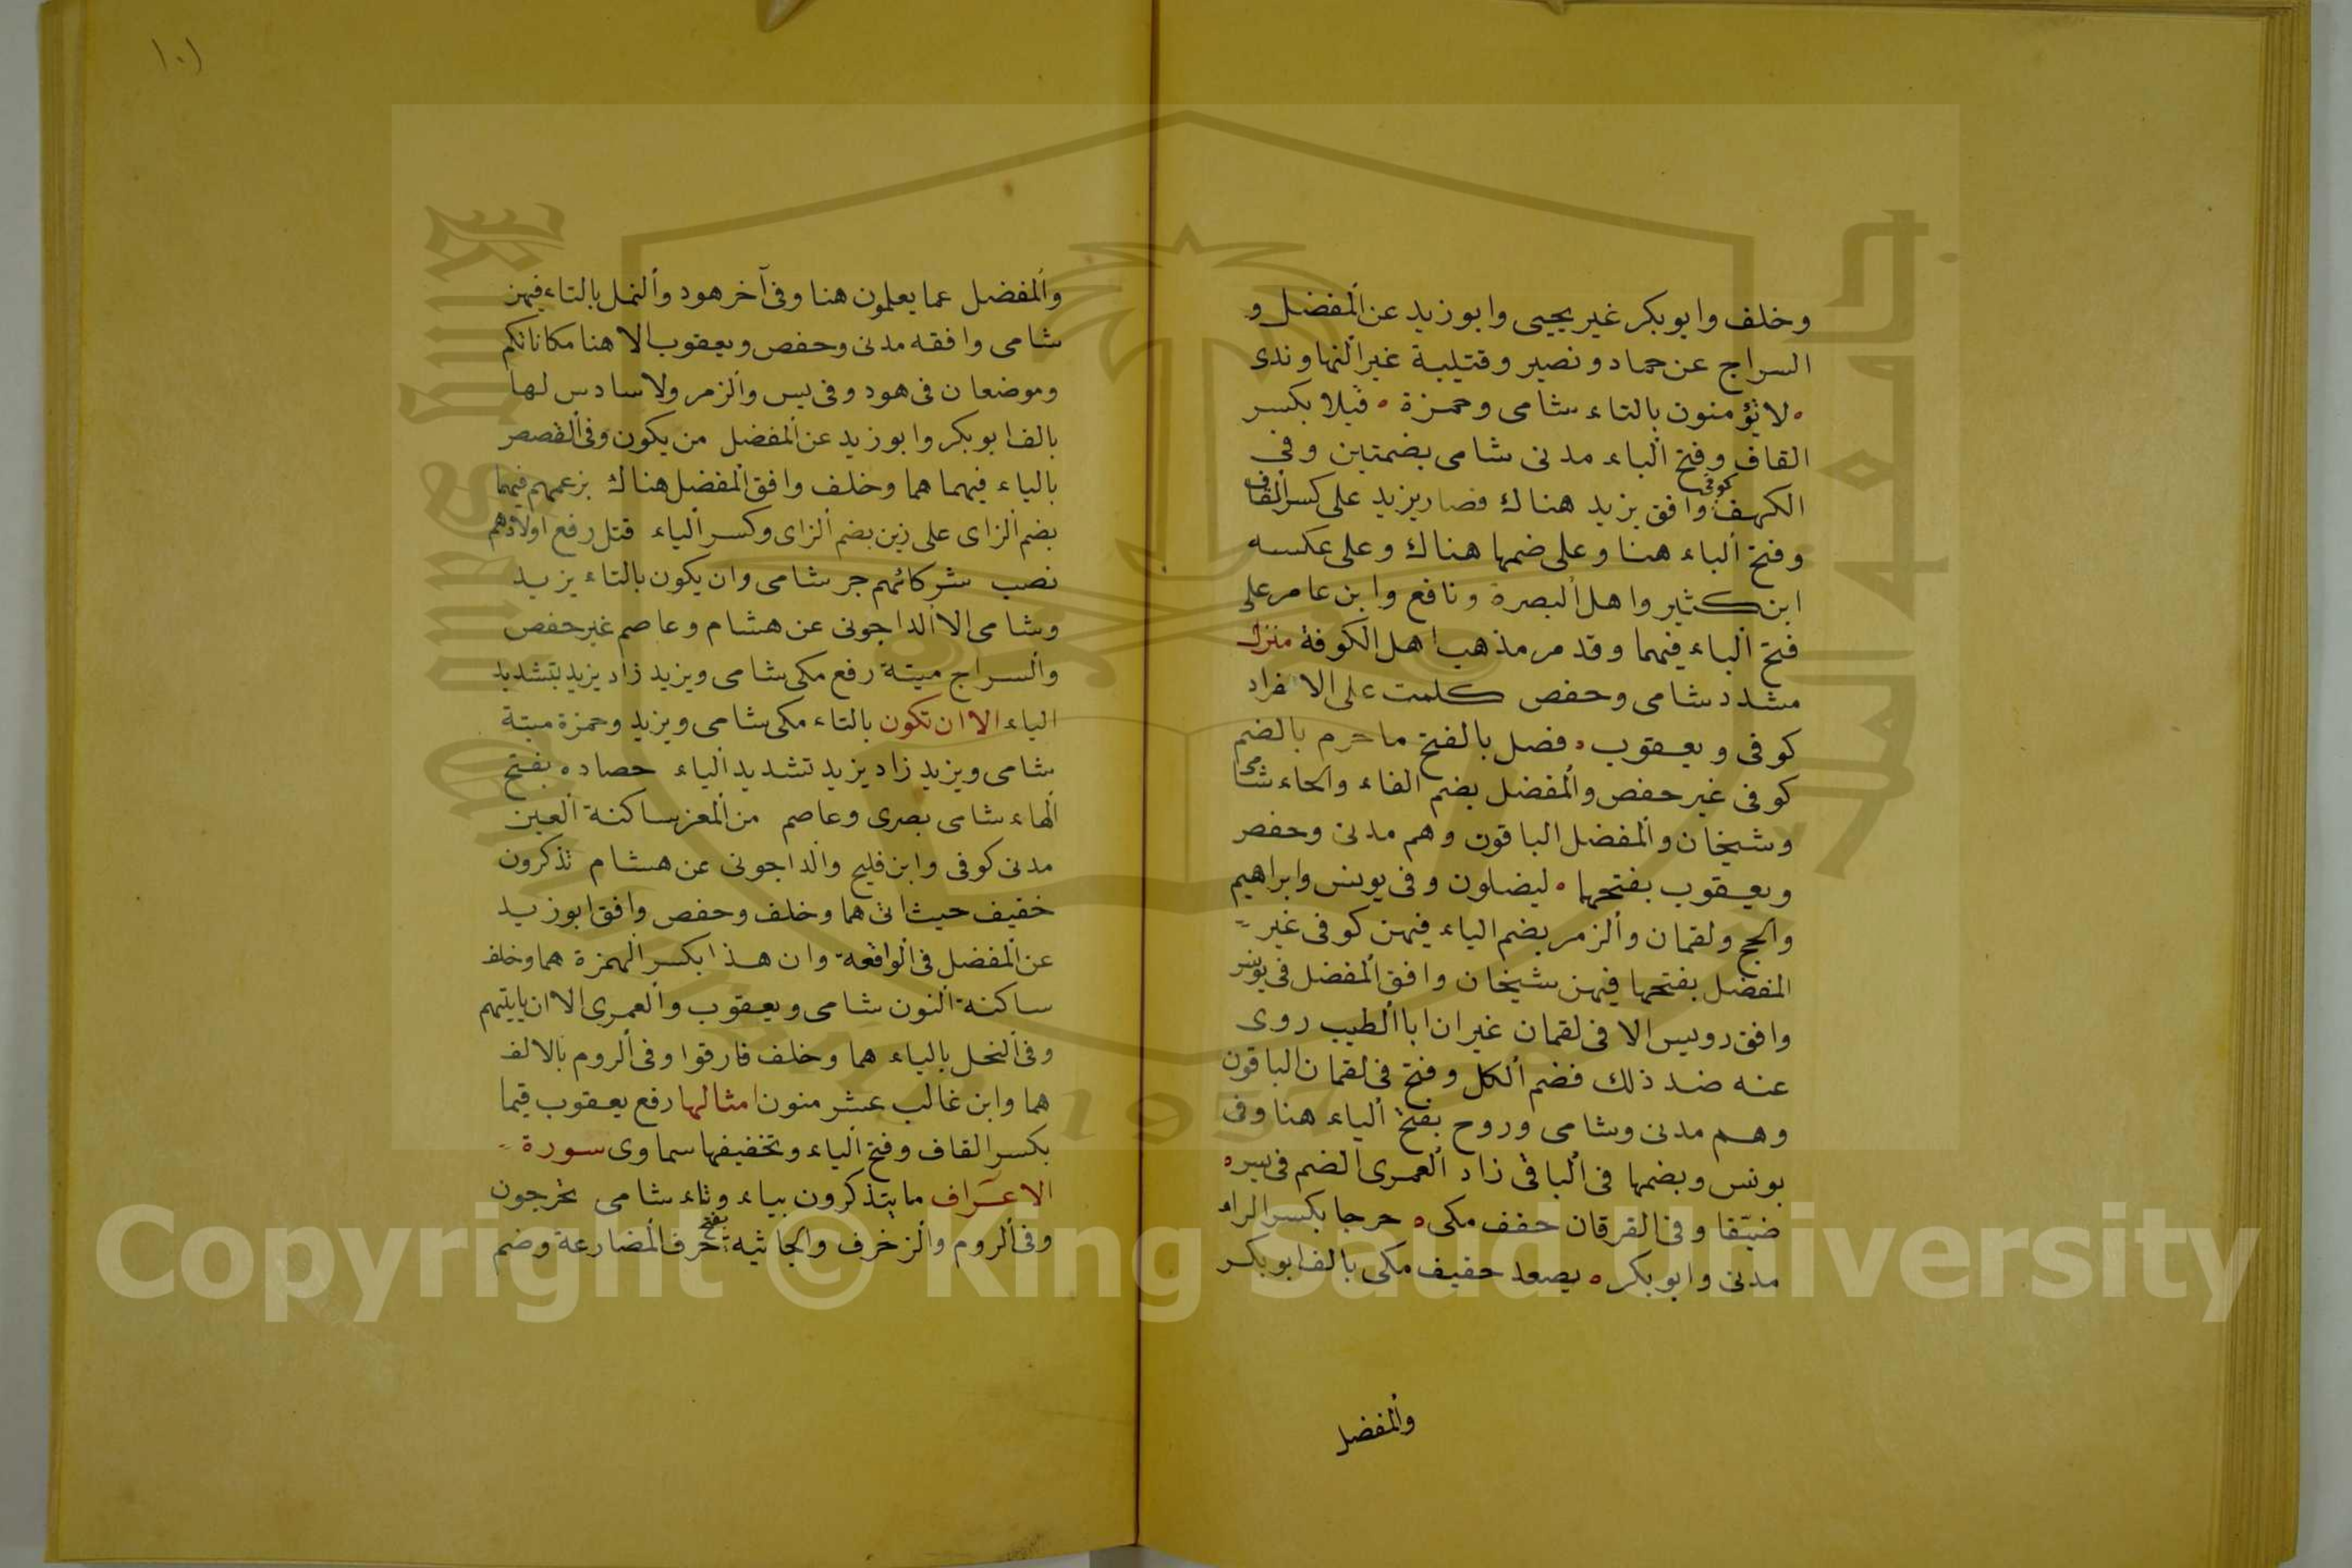 وخلف وابو بكر غير يحيى وابو زيد عن المفضل و
السراج عن حماد ونصير وقتيبة غير النهاوندى
ه لا تؤمنون بالتاء شامى وحمزة ه قبلا بكسر
القاف وفتح الباء مدنى شامى بضمتين وفى
الكهف كوفى وافق يزيد هناك فصار يزيد على كسر القاف
وفتح الباء هنا وعلى ضمها هناك وعلى عكسه
ابن كثير واهل البصرة ونافع وابن عامر على
فتح الباء فيهما وقد مر مذهب اهل الكوفة منزل
مشدد شامى وحفص كلمت على الانفراد
كوفى ويعقوب ه فصل بالفتح ما حرم بالضم
كوفى غير حفص والمفضل بضم الفاء والحاء شامى
وشيخان والمفضل الباقون وهم مدنى وحفص
ويعقوب بفتحها ه ليضلون وفى يونس وابراهيم
والحج ولقمان والزمر بضم الياء فيهن كوفى غير
المفضل بفتحها فيهن شيخان وافق المفضل فى يونس
وافق رويس الا فى لقمان غير ان ابا الطيب روى
عنه ضد ذلك فضم الكل وفتح فى لقمان الباقون
وهم مدنى وشامى وروح بفتح الياء هنا وفى
يونس وبضمها فى الباقى زاد العمرى الضم فى يس ه
ضيقا وفى الفرقان خفف مكى ه حرجا بكسر الراء
مدنى وابو بكر ه يصعد خفيف مكى بالف ابو بكر
والمفضل
١٠١
والمفضل عما يعلمون هنا وفى آخر هود والنمل بالتاء فيهن
شامى وافقه مدنى وحفص ويعقوب الا هنا مكاناتكم
وموضعان فى هود وفى يس والزمر ولا سادس لها
بالف ابو بكر وابو زيد عن المفضل من يكون وفى القصص
بالياء فيهما هما وخلف وافق المفضل هناك بزعمهم فيهما
بضم الزاى على زين بضم الزاى وكسر الياء قتل رفع اولادهم
نصب شركائهم جر شامى وان يكون بالتاء يزيد
وشامى الا الداجونى عن هشام وعاصم غير حفص
والسراج ميتة رفع مكى شامى ويزيد زاد يزيد بتشديد
الياء الا ان تكون بالتاء مكى شامى ويزيد وحمزة ميتة
شامى ويزيد زاد يزيد تشديد الياء حصاده بفتح
الهاء شامى بصرى وعاصم من المعز ساكنة العين
مدنى كوفى وابن فليح والداجونى عن هشام تذكرون
خفيف حيث اتى هما وخلف وحفص وافق ابو زيد
عن المفضل فى الواقعة وان هذا بكسر الهمزة هما وخلف
ساكنة النون شامى ويعقوب والعمرى الا ان ياتيهم
وفى النحل بالياء هما وخلف فارقوا وفى الروم بالالف
هما وابن غالب عشر منون امثالها رفع يعقوب قيما
بكسر القاف وفتح الياء وتخفيفها سماوى سورة
الاعراف ما يتذكرون بياء وتاء شامى تخرجون
وفى الروم والزخرف والجاثية بفتح حرف المضارعة وضم
Copyright © King Saud University
1957